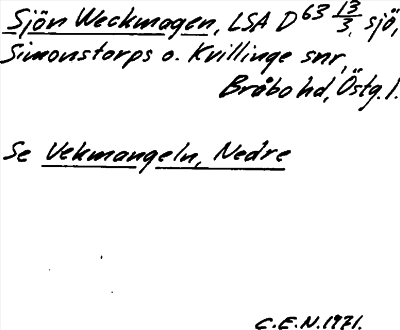 Sjön Weckmagen, LSA D63 13/3, sjö,
Simonstorps o. Kvillinge snr,
Bråbo hd, Östg.l.
Se Vekmangeln, Nedre
C.E.N.1971.